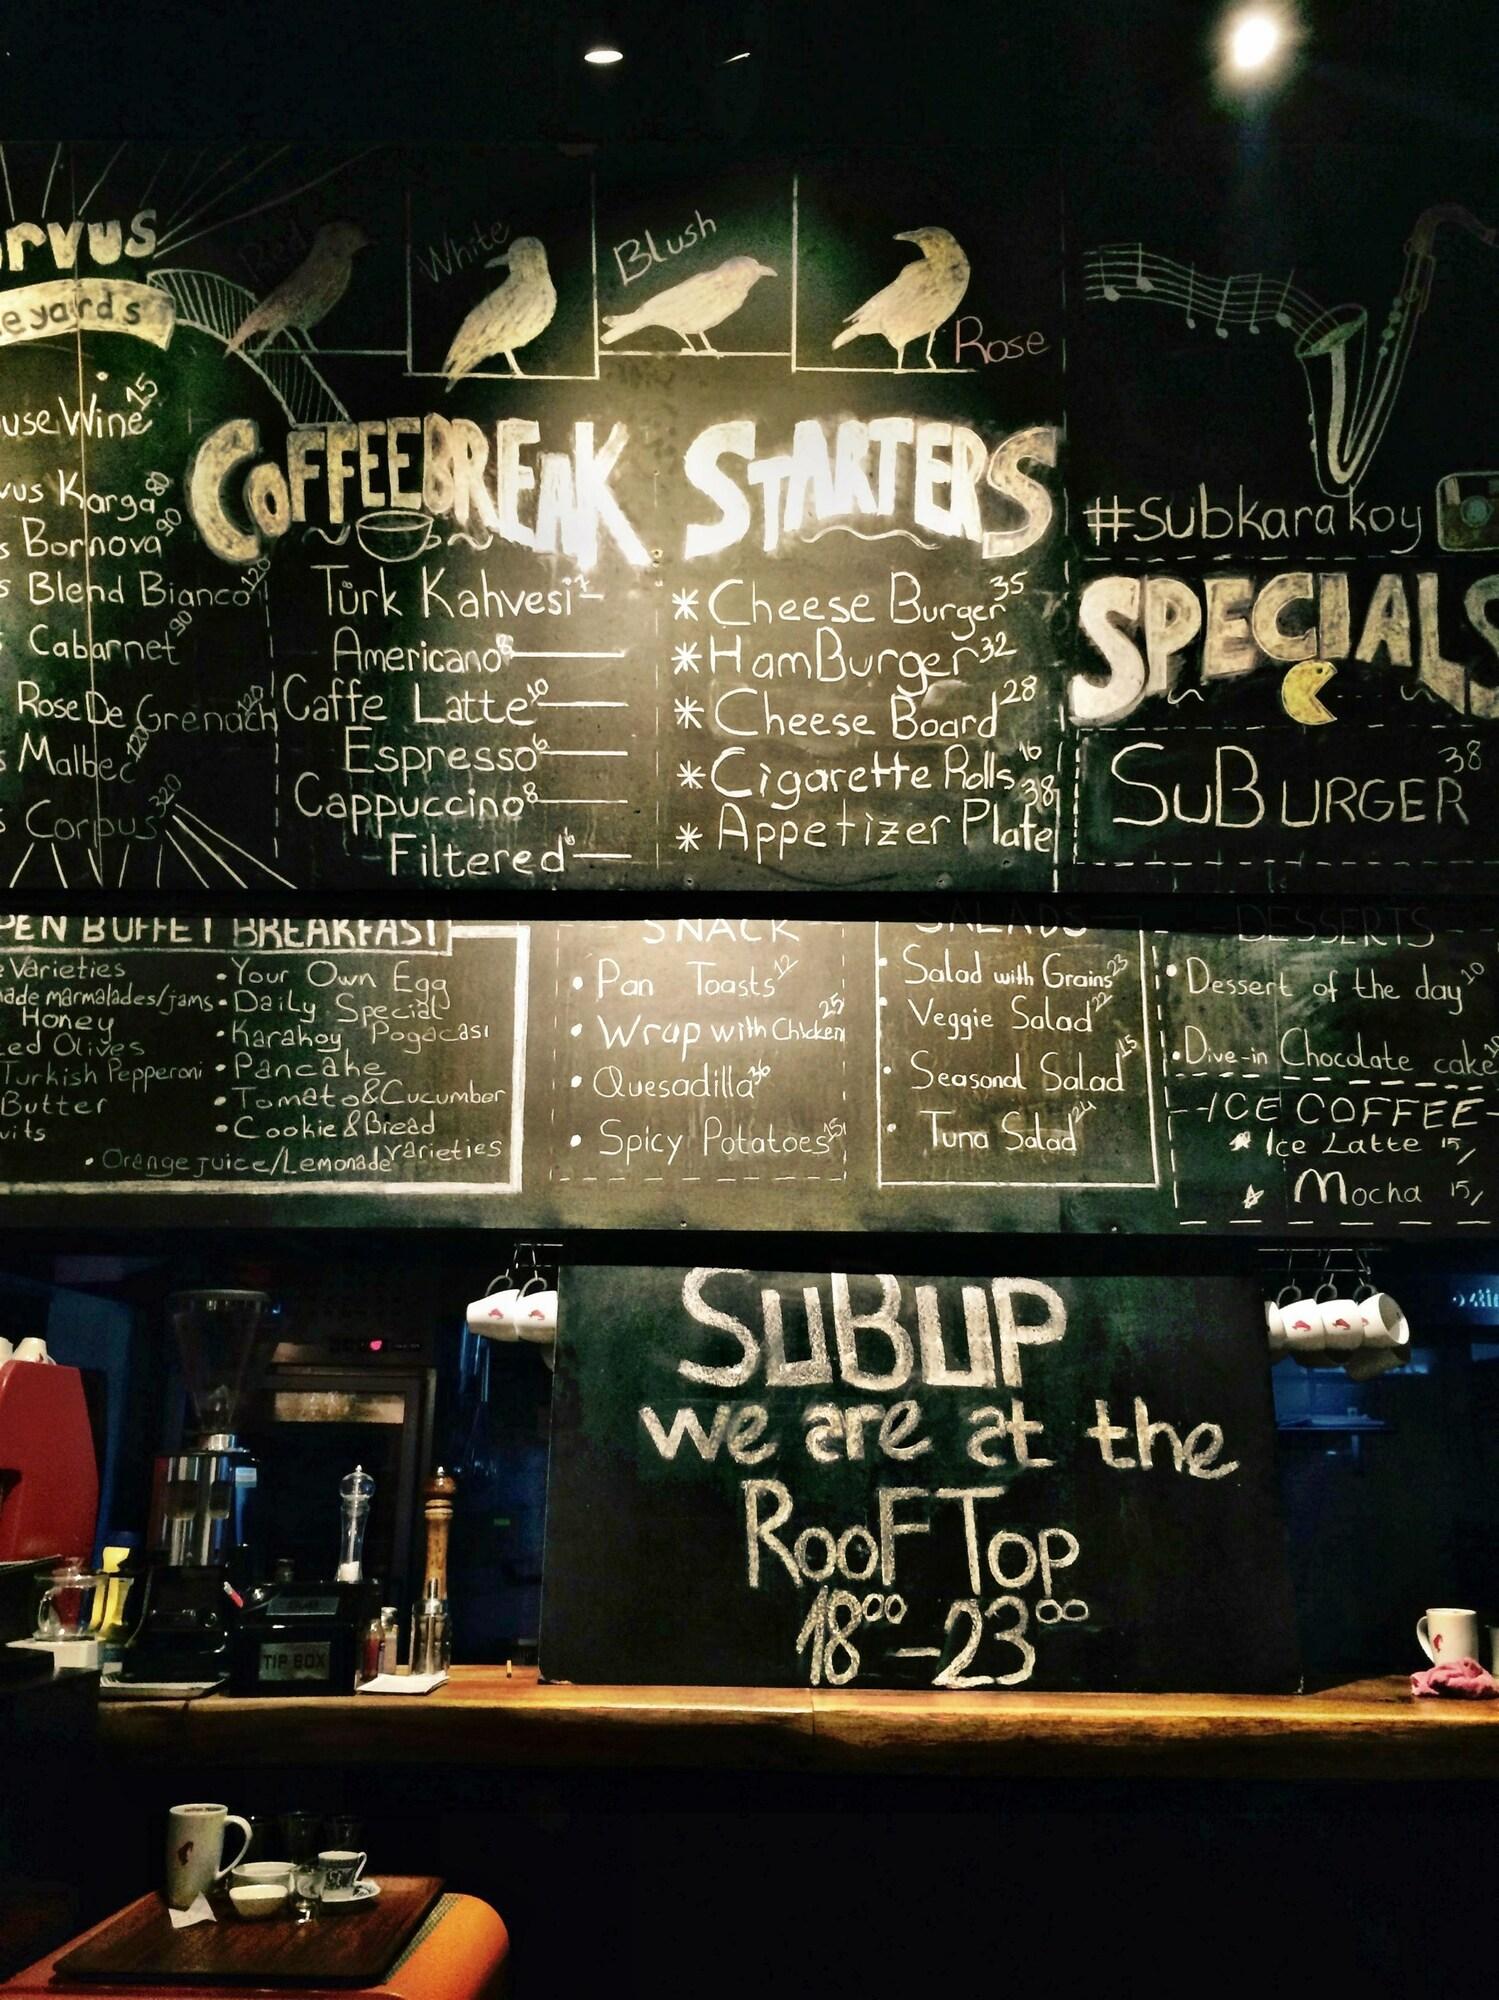 rvus
eyards
Red
White
Blush
Rose
use Wine 15
vus Karga 80
s Bornova 90
s Blend Bianco 120
s Cabarnet 90
Rose De Grenach 120
s Malbec 120
s Corpus 320
COFFEEBREAK
Türk Kahvesi 7
Americano 8
Caffe Latte 10
Espresso 6
Cappuccino 8
Filtered 6
STARTERS
* Cheese Burger 35
* HamBurger 32
* Cheese Board 28
* Cigarette Rolls 16
* Appetizer Plate 38
#subkarakoy
SPECIALS
SuBURGER 38
PEN BUFFET BREAKFAST
e Varieties
ade marmalades/jams
Honey
ed Olives
Turkish Pepperoni
Butter
uits
• Your Own Egg
• Daily Special
• Karakoy Pogacası
• Pancake
• Tomato&Cucumber
• Cookie&Bread
varieties
• Orange juice/Lemonade
SNACK
• Pan Toasts 12
• Wrap with Chicken 25
• Quesadilla
• Spicy Potatoes 15
SALADS
• Salad with Grains 23
• Veggie Salad 22
• Seasonal Salad 15
• Tuna Salad 24
DESSERTS
• Dessert of the day 10
• Dive-in Chocolate cake 10
-ICE COFFEE-
Ice Latte 15/
Mocha 15/
SuBUP
we are at the
RooF Top
18⁰⁰-23⁰⁰
TIP BOX